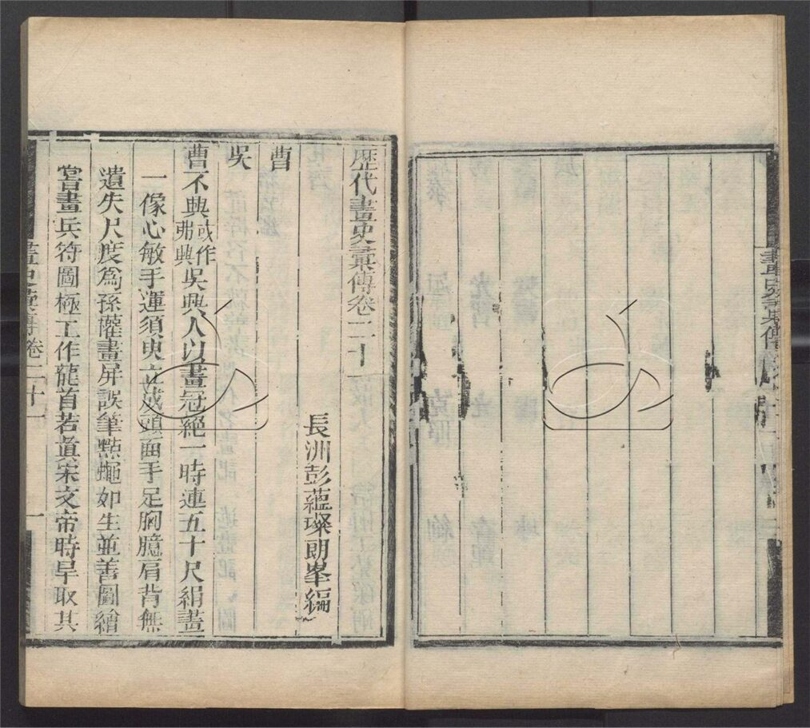 畫史彙傳卷
歷代畫史彙傳卷二十一
長洲彭蘊璨朗峯編
曹
吳
曹不興或作弗興吳興人以畫冠絕一時連五十尺絹畫
一像心敏手運須臾立成頭面手足胸臆肩背無
遺失尺度為孫權畫屏誤筆點蠅如生並善圖繪
嘗畫兵符圖極工作龍首若真宋文帝時旱取其
畫史彙傳卷二十一 一